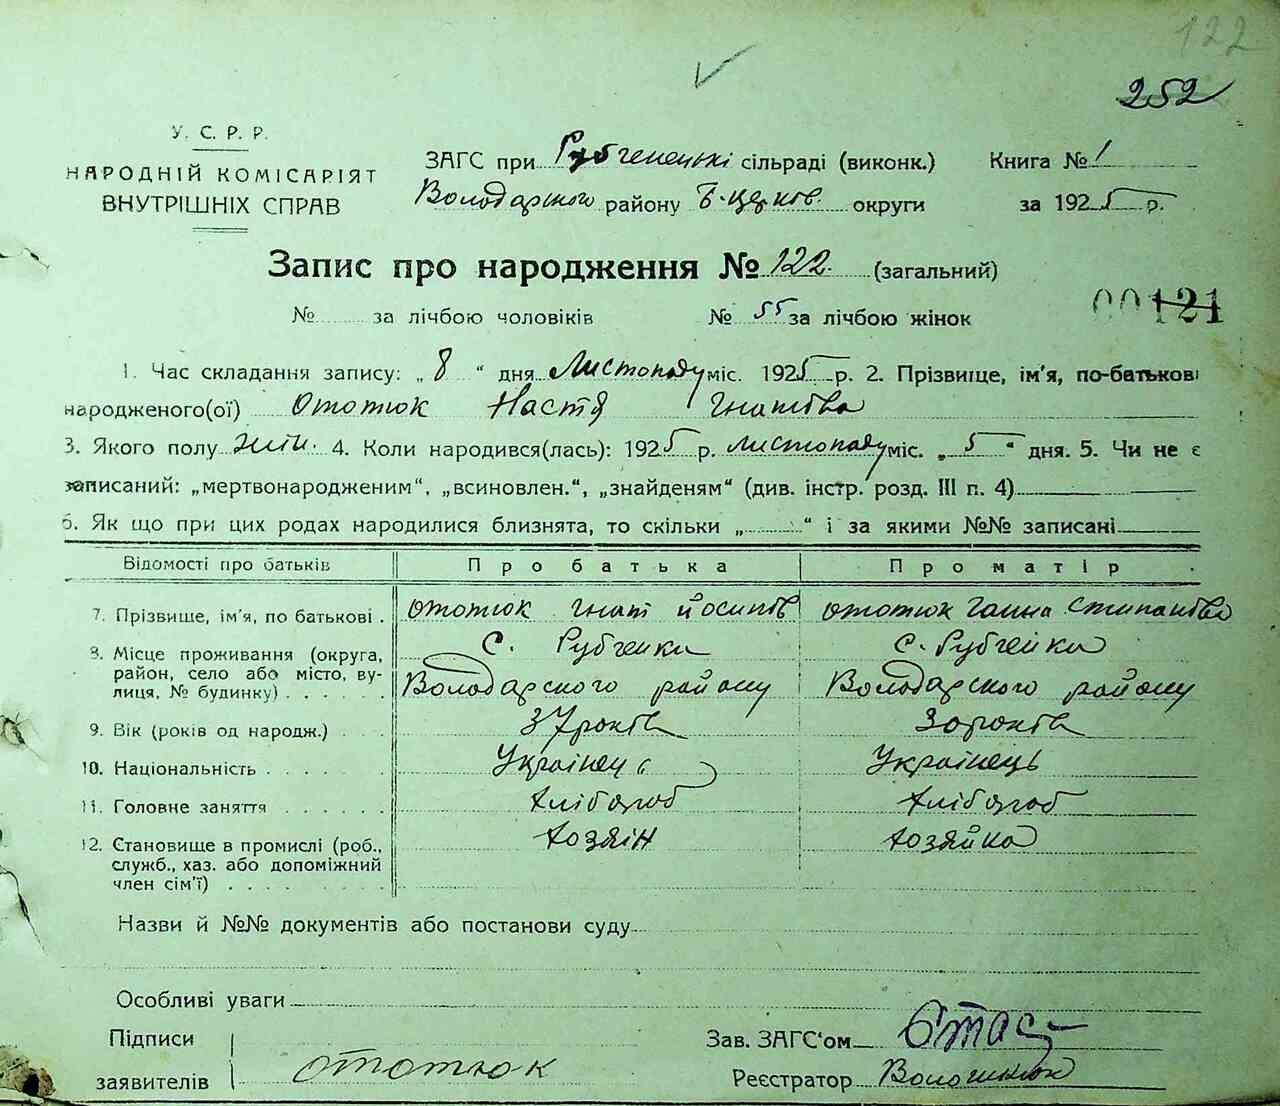 122
252
У. С. Р. Р.
НАРОДНІЙ КОМІСАРІЯТ
ВНУТРІШНІХ СПРАВ
ЗАГС при Рубченській сільраді (виконк.) Книга № 1
Володарского району Б-церков. округи за 1925 р.
Запис про народження № 122. (загальний)
№ за лічбою чоловіків № 55 за лічбою жінок
00121
1. Час складання запису: „ 8 “ дня Листопаду міс. 1925 р. 2. Прізвище, ім'я, по-батькові
народженого(ої) Ототюк Настя Гнатівна
3. Якого полу жін. 4. Коли народився(лась): 1925 р. листопаду міс. „ 5 “ дня. 5. Чи не є
записаний: „мертвонародженим“, „всиновлен.“, „знайденям“ (див. інстр. розд. III п. 4)
6. Як що при цих родах народилися близнята, то скільки „ “ і за якими №№ записані
Відомості про батьків Про батька Про матір
7. Прізвище, ім'я, по батькові . Ототюк Гнат Йосипів Ототюк Ганна Степанівна
8. Місце проживання (округа, С. Рубченка С. Рубченка
район, село або місто, ву-
лиця, № будинку) Володарского району Володарского району
9. Вік (років од народж.) 37 років 30 років
10. Національність Українець Українець
11. Головне заняття Хлібороб Хлібороб
12. Становище в промислі (роб., Хозяїн Хозяйка
служб., хаз. або допоміжний
член сім'ї)
Назви й №№ документів або постанови суду
Особливі уваги
Підписи Зав. ЗАГС'ом
заявителів Ототюк Реєстратор